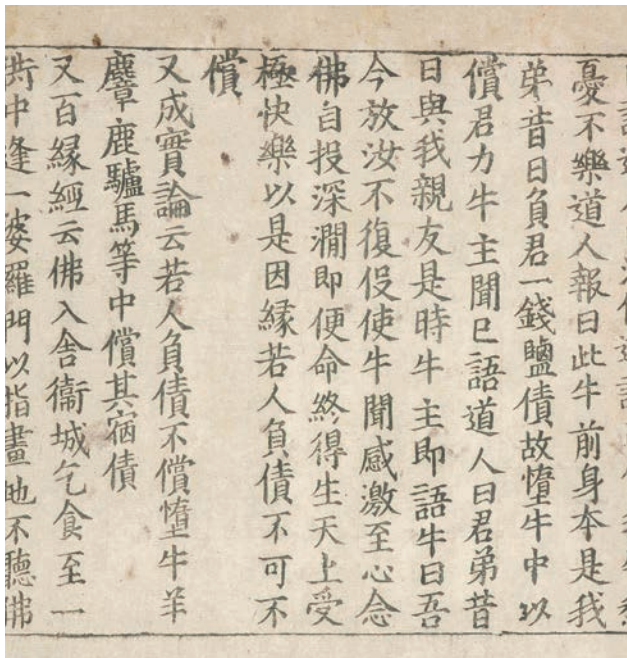 憂不樂道人報曰此牛前身本是我
弟昔日負君一錢鹽債故墮牛中以
償君力牛主聞已語道人曰君弟昔
日與我親友是時牛主即語牛曰吾
今放汝不復役使牛聞感激至心念
佛自投深澗即便命終得生天上受
極快樂以是因緣若人負債不可不
償
又成實論云若人負債不償墮牛羊
麞鹿驢馬等中償其宿債
又百緣經云佛入舍衞城乞食至一
街中逢一婆羅門以指畫地不聽佛